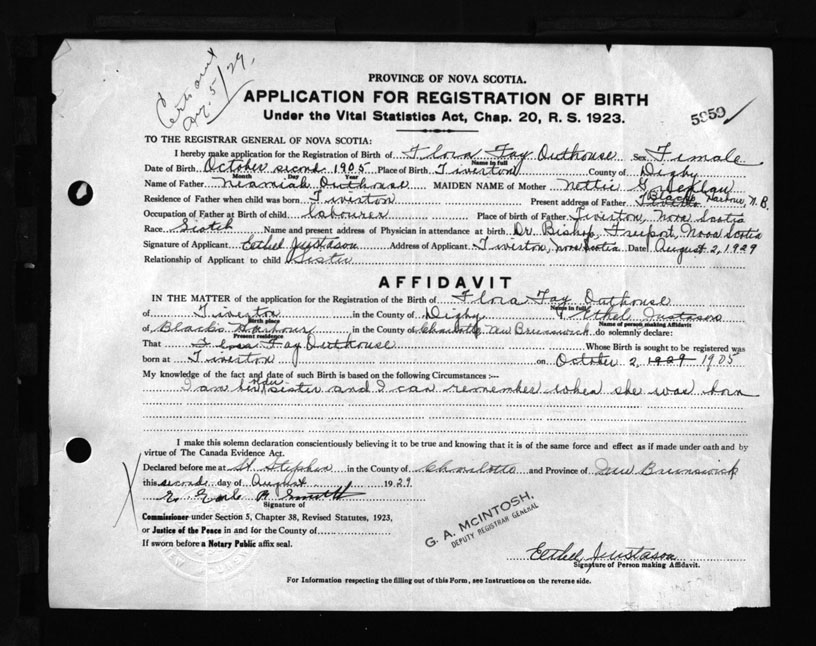 PROVINCE OF NOVA SCOTIA.
APPLICATION FOR REGISTRATION OF BIRTH
Under the Vital Statistics Act, Chap. 20, R. S. 1923.
5959
Aug. 5/29.
TO THE REGISTRAR GENERAL OF NOVA SCOTIA:
I hereby make application for the Registration of Birth of Flora Fay Outhouse Sex Female
Name in full
Date of Birth October second 1905 Place of Birth Tiverton County of Digby
Month Day Year
Name of Father Outhouse MAIDEN NAME of Mother Nettie
Residence of Father when child was born Tiverton Present address of Father Blacks Harbour, N. B.
Occupation of Father at Birth of child Labourer Place of birth of Father Tiverton, Nova Scotia
Race Scotch Name and present address of Physician in attendance at birth Dr. Bishop, Freeport, Nova Scotia
Signature of Applicant Ethel Justason Address of Applicant Tiverton, Nova Scotia Date August 2, 1929
Relationship of Applicant to child Sister
AFFIDAVIT
IN THE MATTER of the application for the Registration of the Birth of Flora Fay Outhouse
Name in full
of Tiverton in the County of Digby I, Ethel Justason
Birth place Name of person making Affidavit
of Black's Harbour in the County of Charlotte, New Brunswick do solemnly declare:
Present residence
That Flora Fay Outhouse Whose Birth is sought to be registered was
born at Tiverton on October 2, 1929 1905
My knowledge of the fact and date of such Birth is based on the following Circumstances :—
I am her older sister and I can remember when she was born
I make this solemn declaration conscientiously believing it to be true and knowing that it is of the same force and effect as if made under oath and by
virtue of The Canada Evidence Act.
Declared before me at St. Stephen in the County of Charlotte and Province of New Brunswick
this second day of August 1929
Signature of
Commissioner under Section 5, Chapter 38, Revised Statutes, 1923,
or Justice of the Peace in and for the County of
If sworn before a Notary Public affix seal.
G. A. McINTOSH,
DEPUTY REGISTRAR GENERAL
Ethel Justason
Signature of Person making Affidavit.
For Information respecting the filling out of this Form, see Instructions on the reverse side.